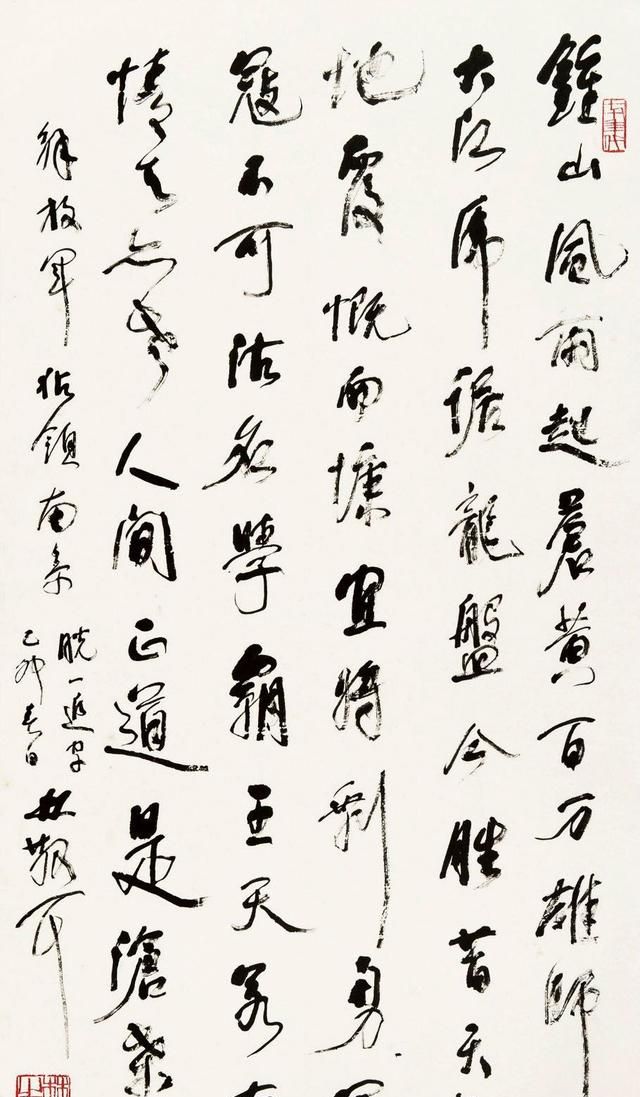 鍾山風雨起蒼黃百万雄師
大江虎踞龍盤今勝昔天
地覆慨而慷宜將剩勇
寇不可沽名學霸王天若
情天亦老人間正道是滄桑
解放軍佔領南京
脱一追字
乙卯春日
林散耳